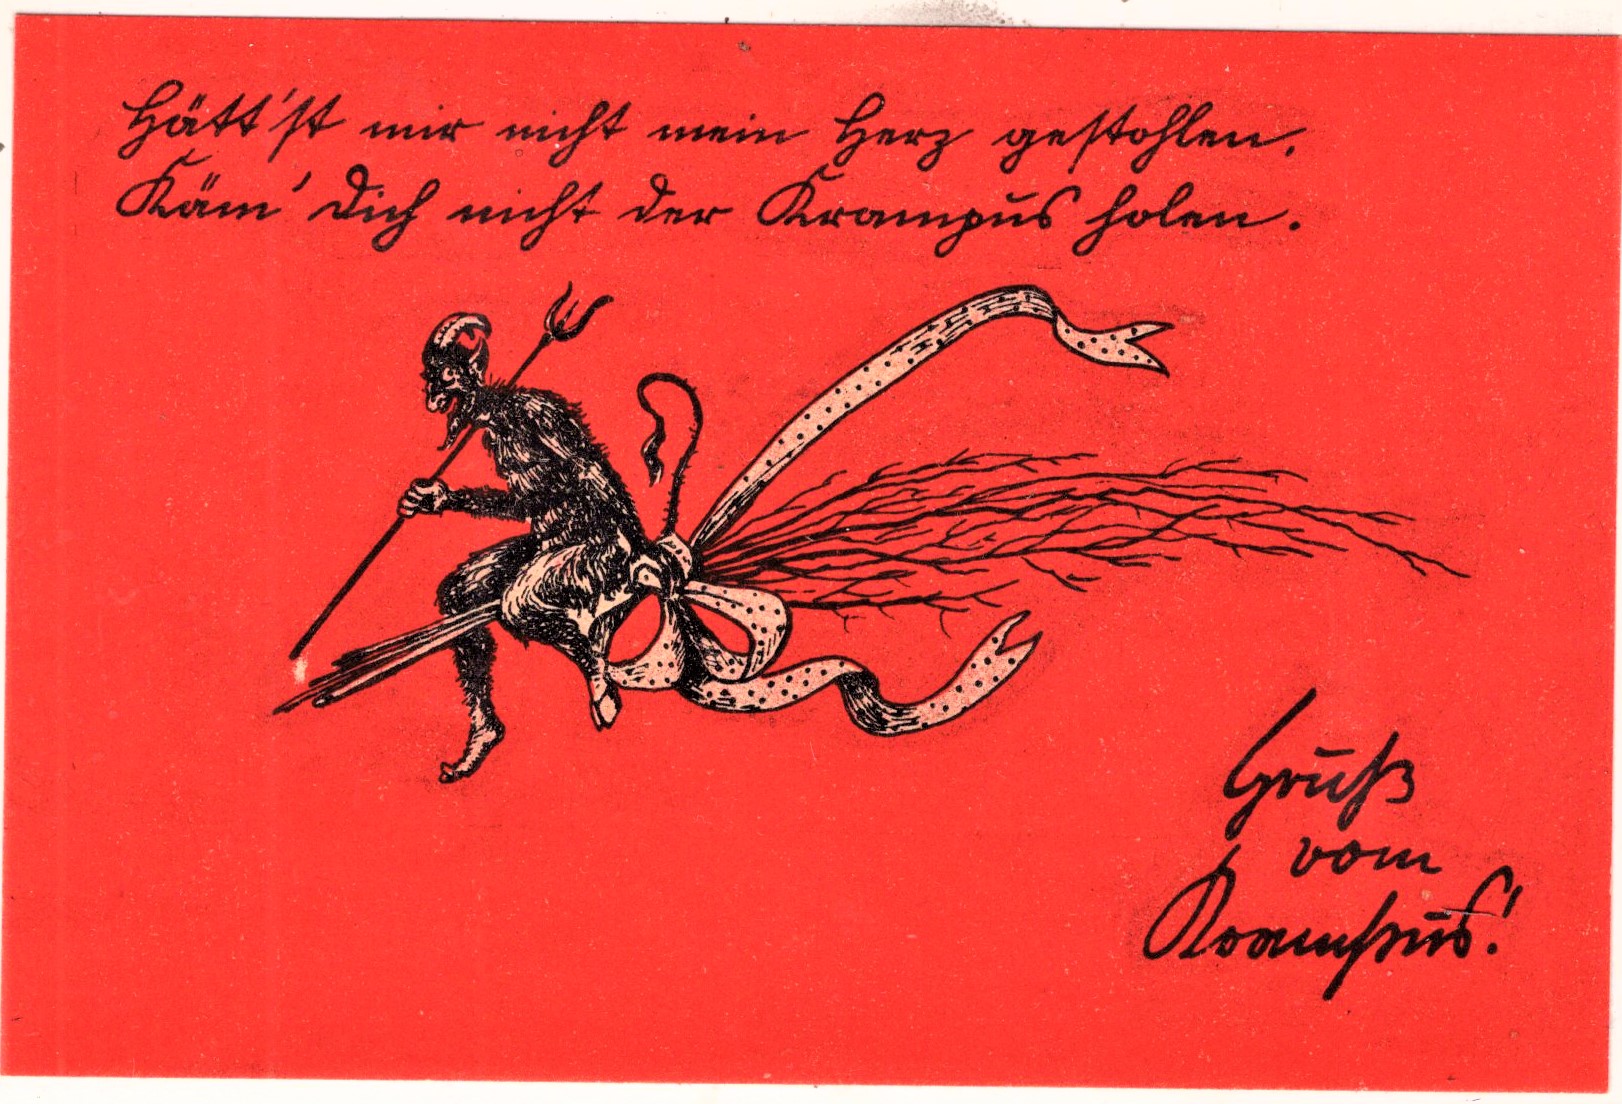 Hätt'st mir nicht mein Herz gestohlen,
Käm' Dich nicht der Krampus holen.
Gruß
vom
Krampus!